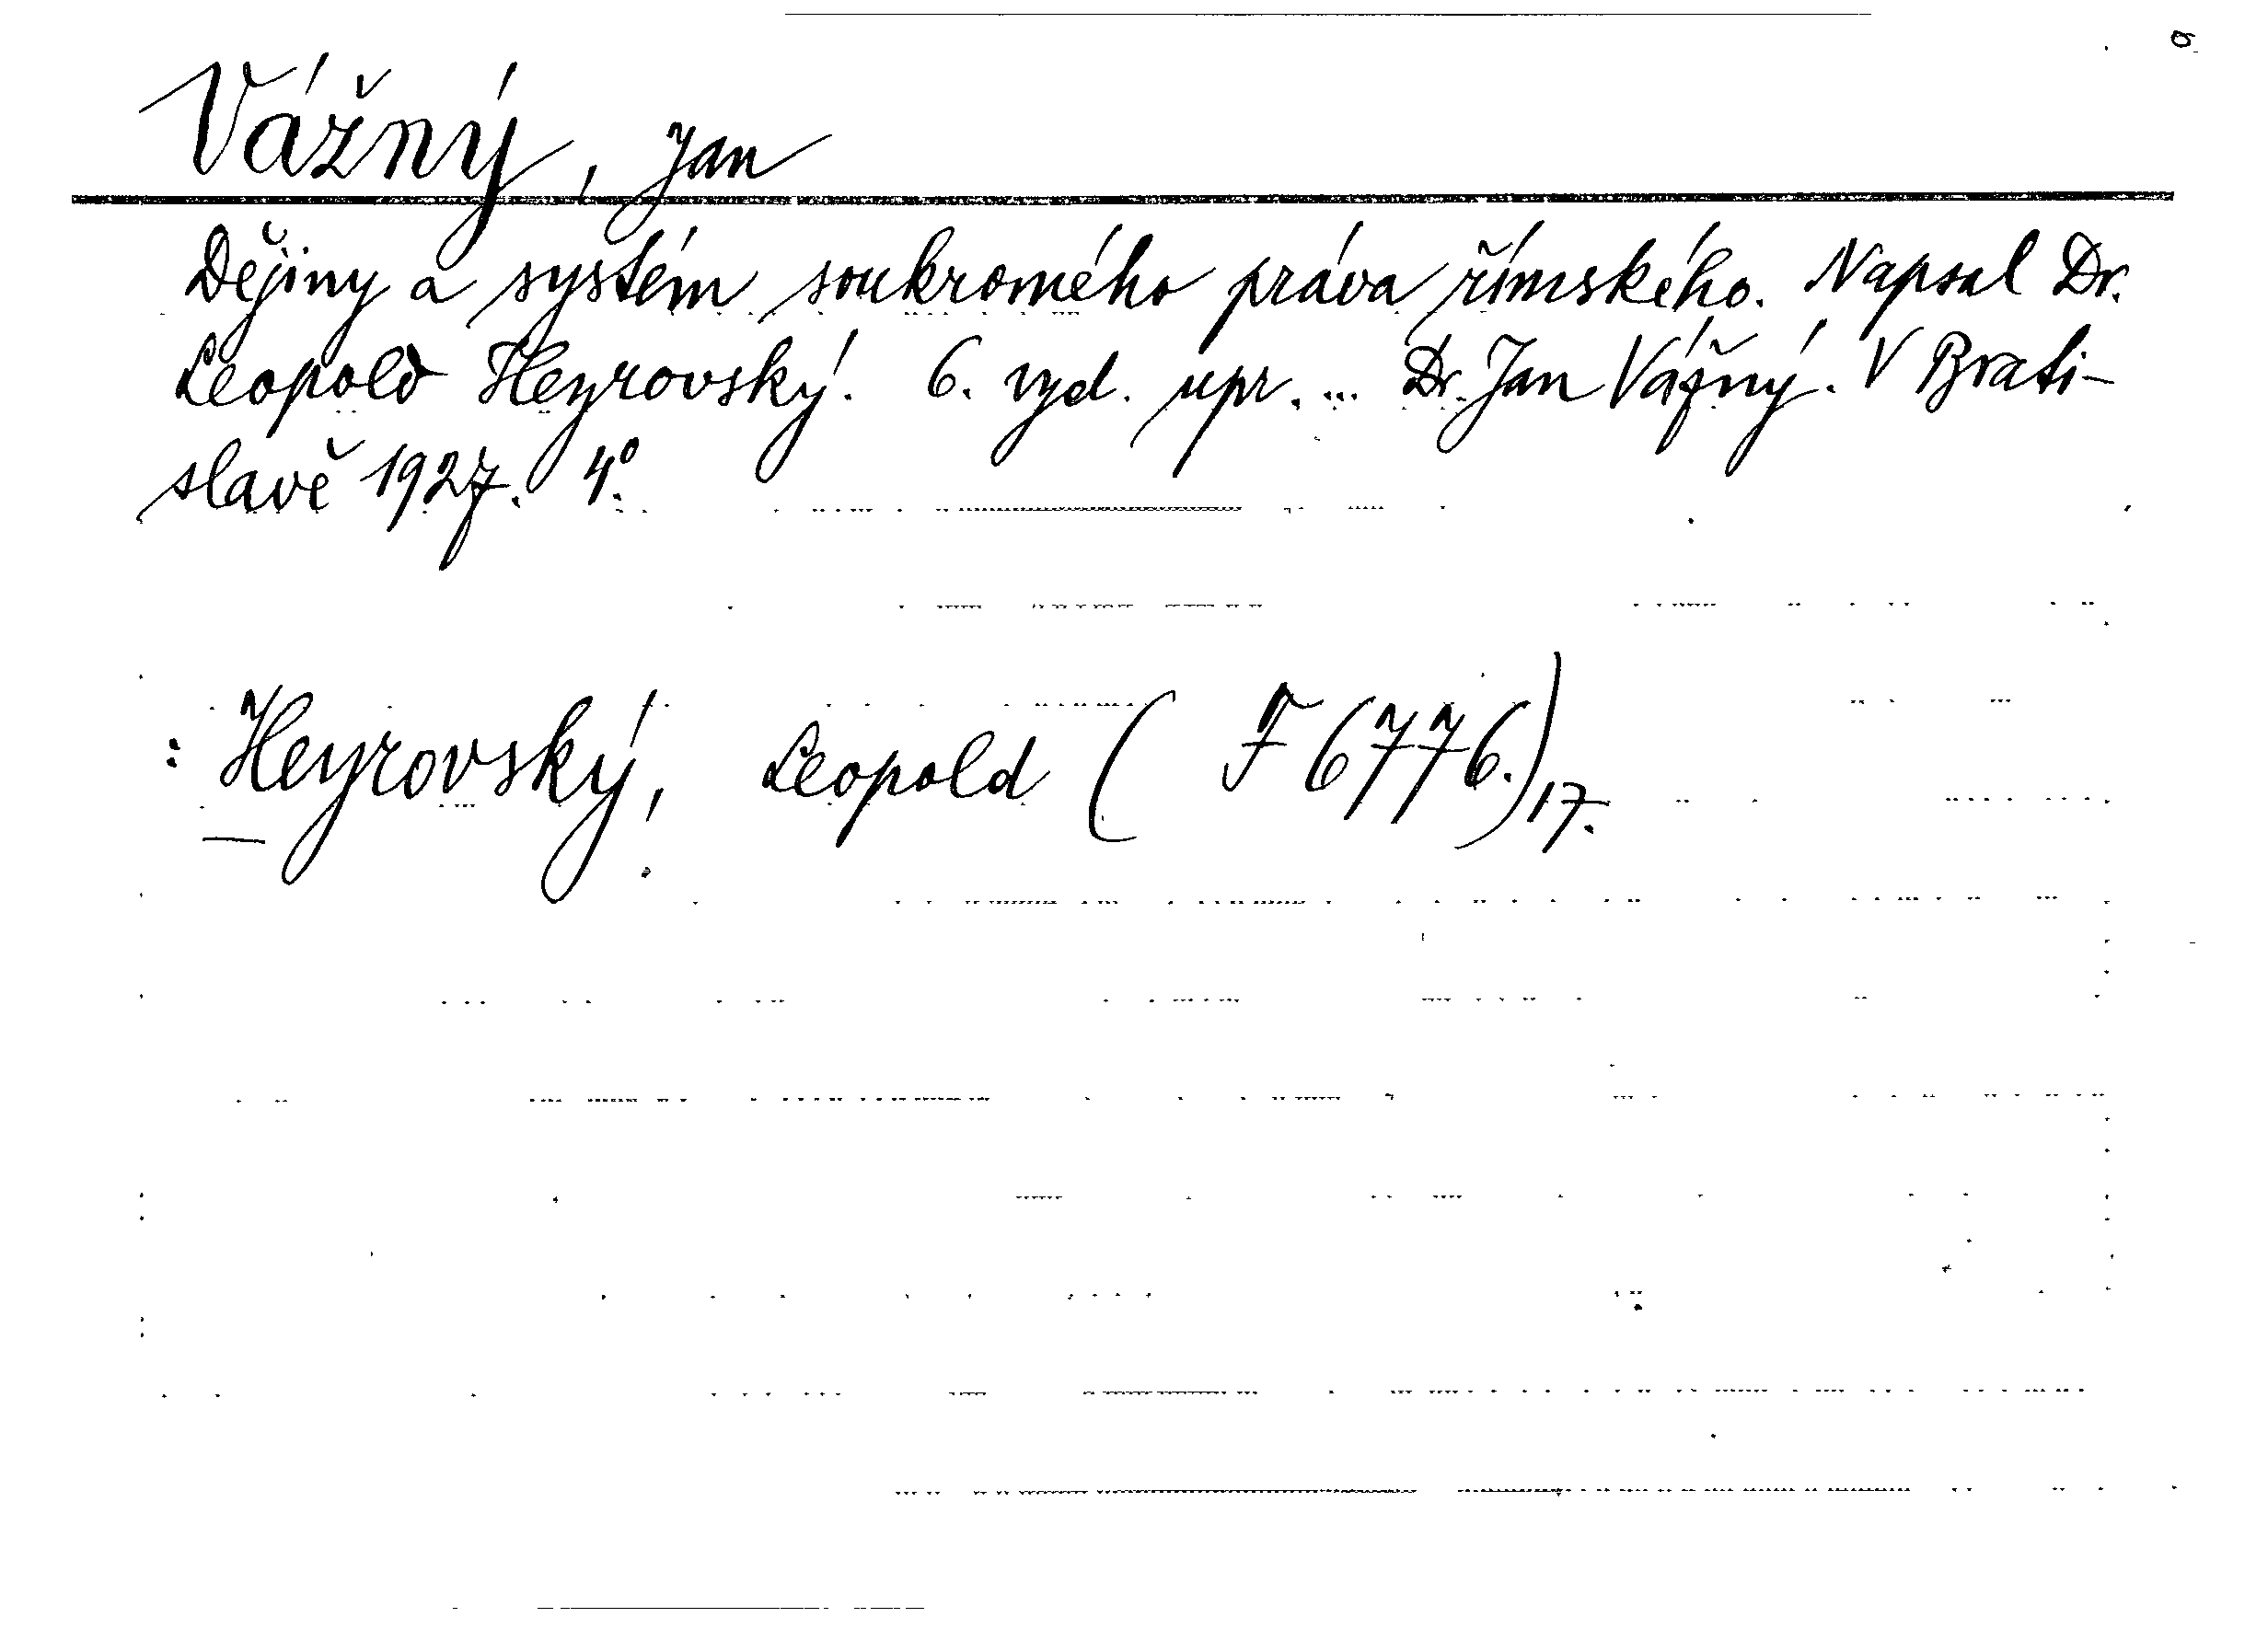 Vážný, Jan
Dějiny a systém soukromého práva římského. Napsal Dr.
Leopold Heyrovský. 6. vyd. upr. ... Dr. Jan Vážný. V Brati-
slavě 1927. 4°.
: Heyrovský, Leopold ( F 6776.)17.